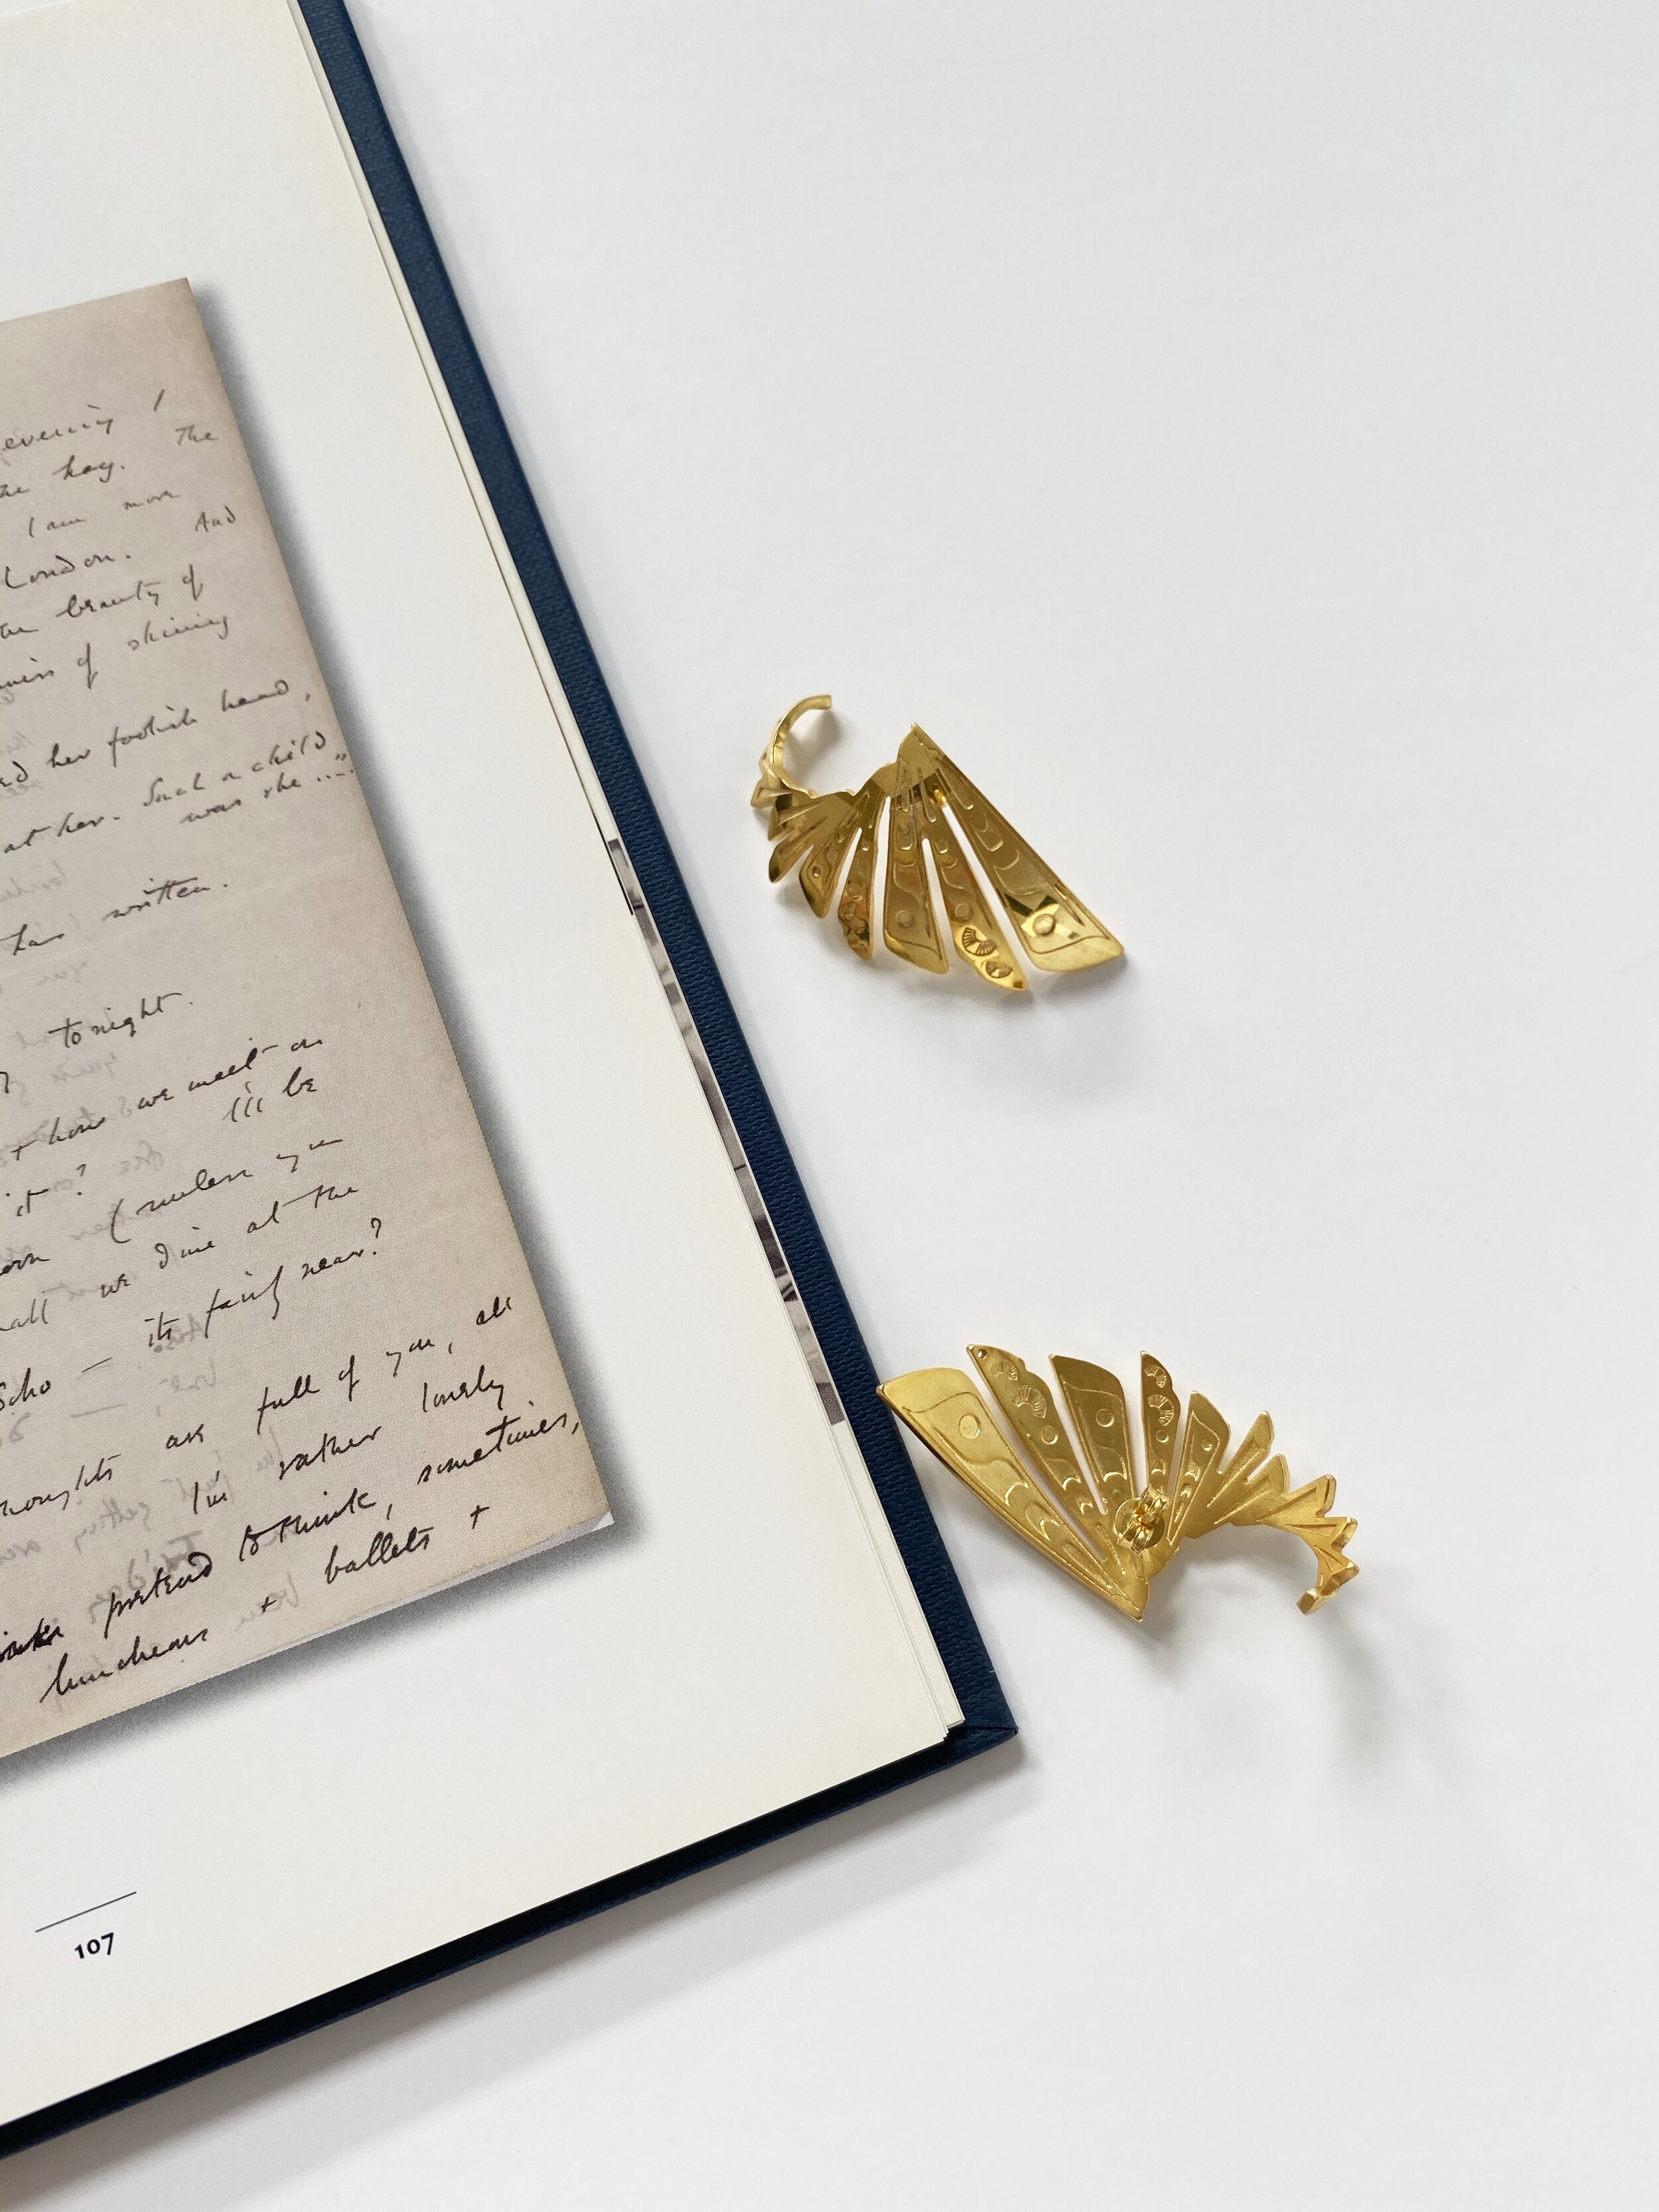 evening /
the hay. The
I am more
London. And
the beauty of
of shining
her foolish head,
at her. Such a child
was she ....."
has written.
tonight.
+ how we meet on
it? I'll be
(unless you
we dine at the
Soho — its fairly near?
thoughts are full of you, all
I'm rather lonely
pretend to think, sometimes,
luncheons + ballets +
107